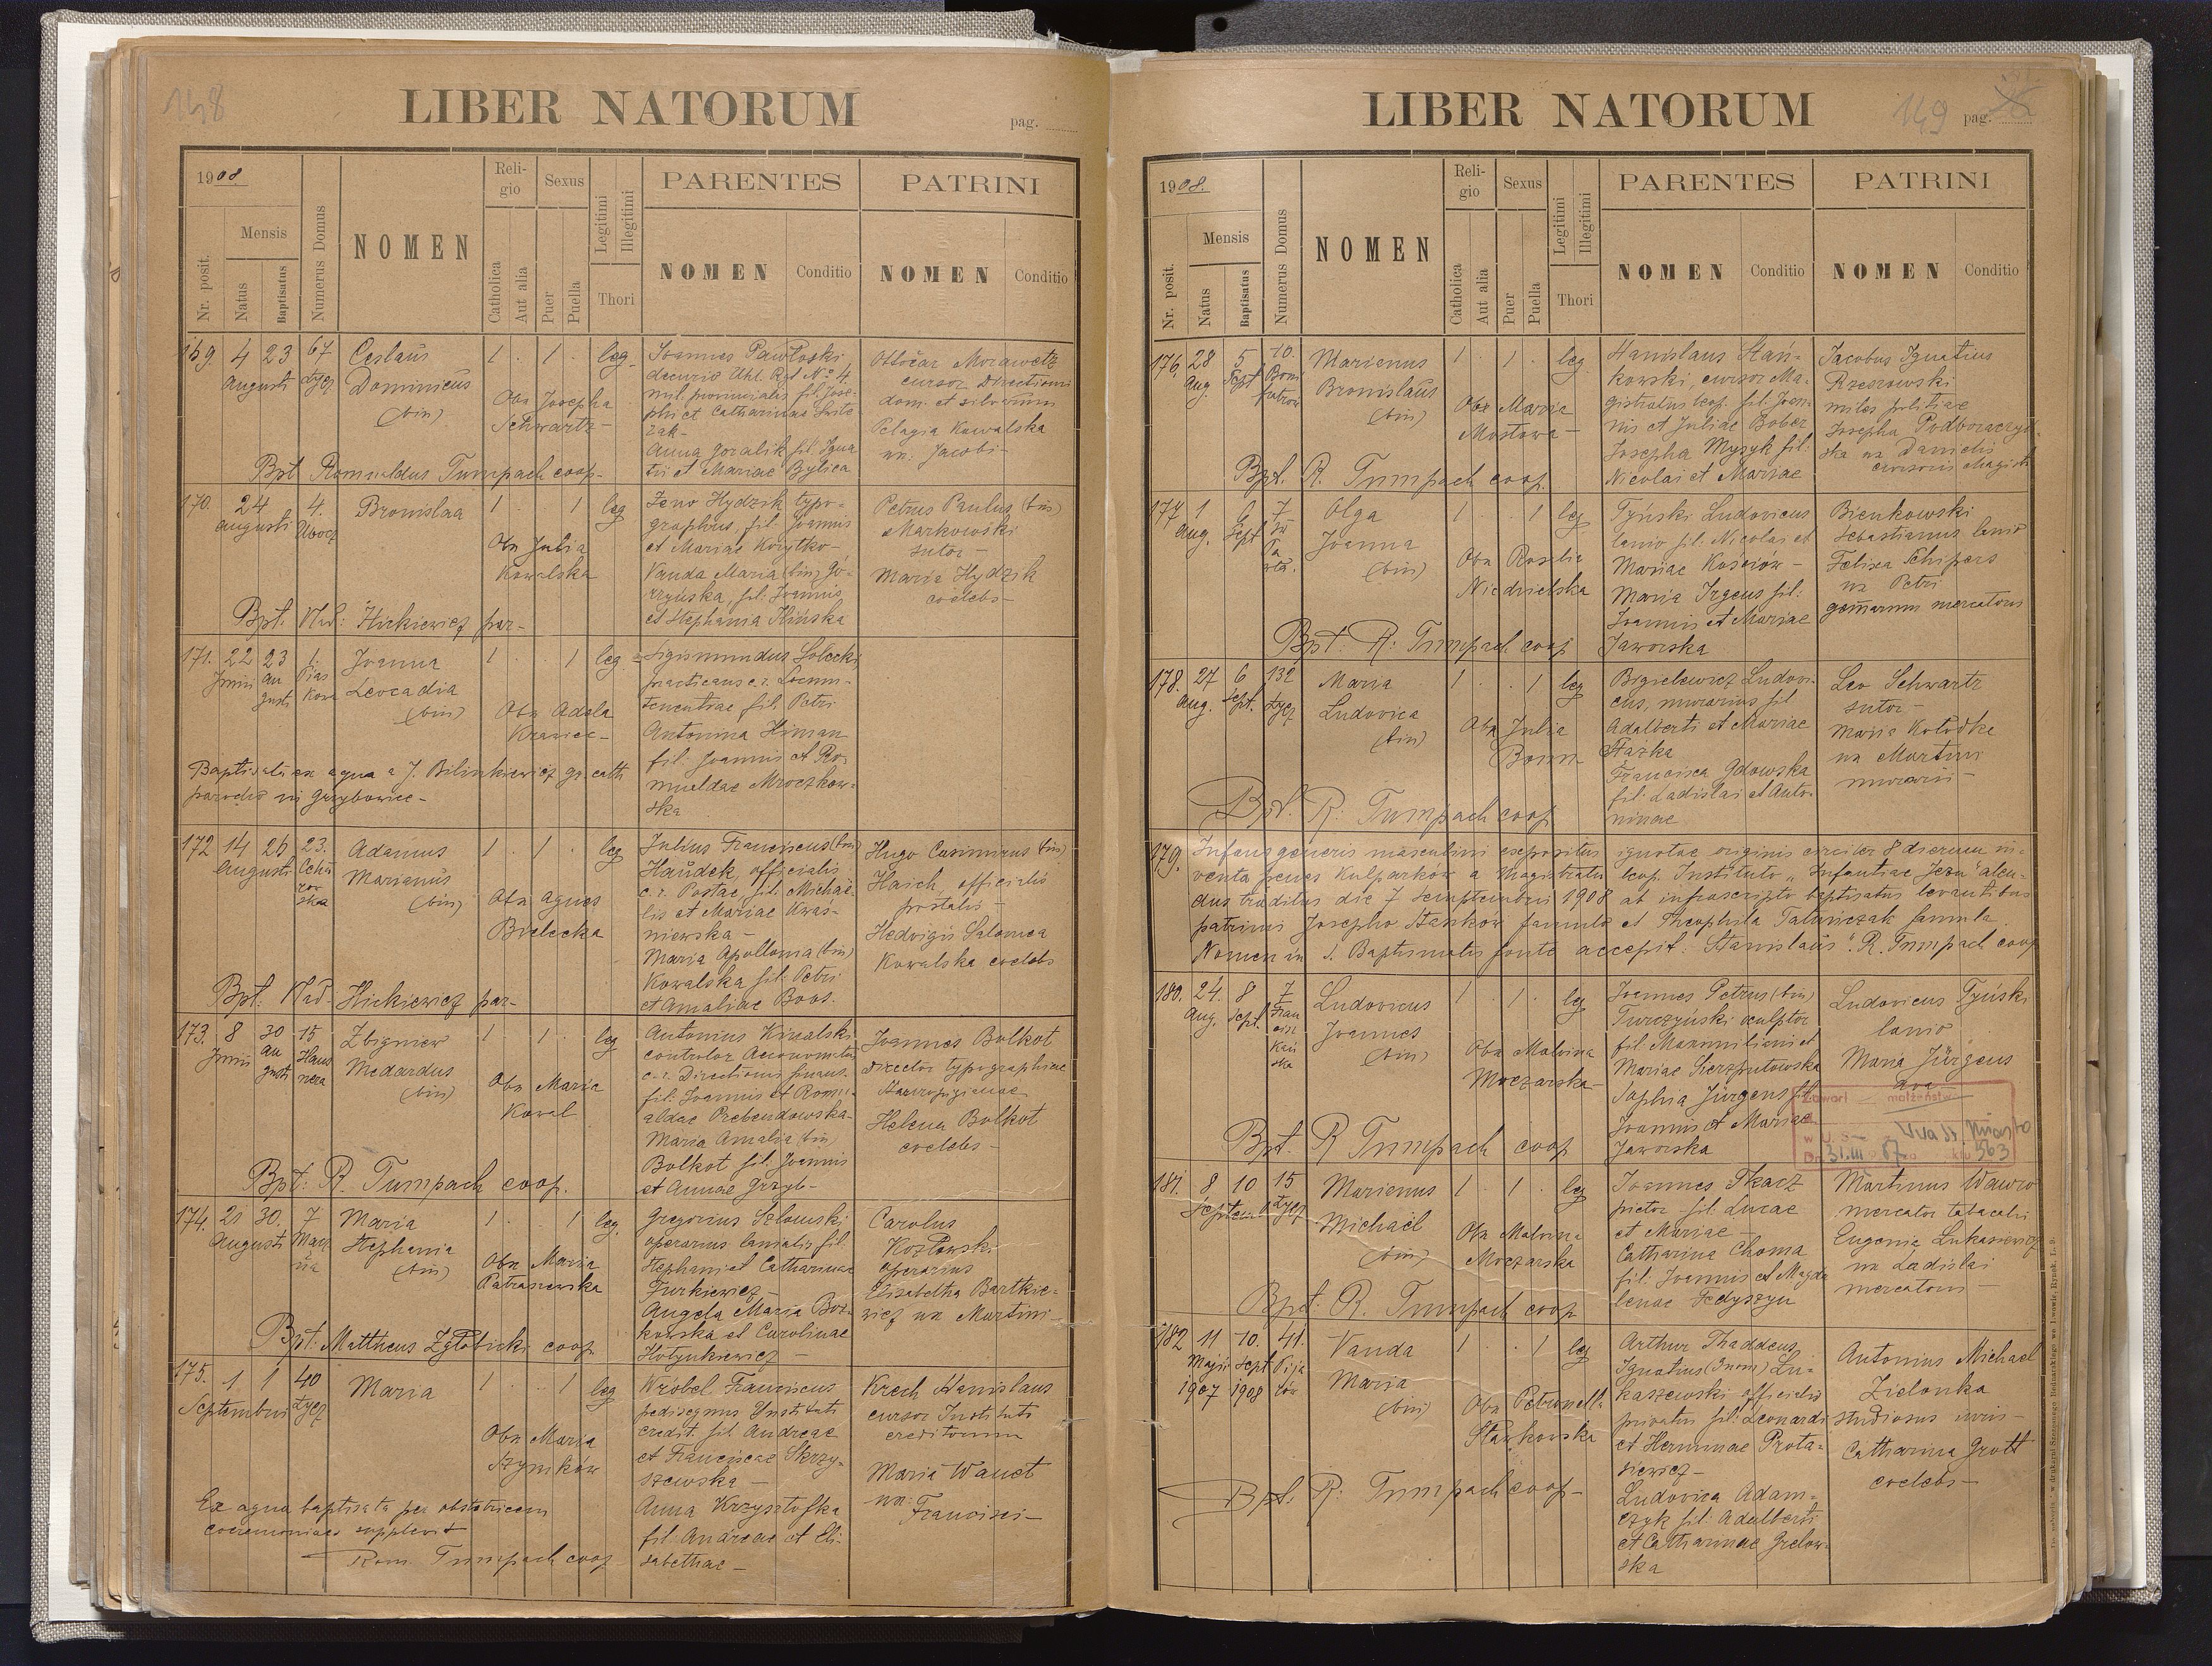 148
LIBER NATORUM
pag.
1908.
Mensis
Nr. posit.
Natus
Baptisatus
Numerus Domus
NOMEN
Reli-
gio
Catholica
Aut alia
Sexus
Puer
Puella
Legitimi
Illegitimi
Thori
PARENTES
NOMEN
Conditio
PATRINI
NOMEN
Conditio
169. 4 23 67
Augusti
Ceslaus
Dominicus
(bin)
1 . 1 . leg.
Obx Josepha
Schwartz-
Joannes Pawłoski
decurio Uhl. Rgt No 4.
mil. provincialis fil. Jose-
phi et Catharinae
Anna Goralik fil. Igna
tii et Mariae Bylica
Ottocar Morawetz
cursor Directionis
dom. et silvarum
Pelagia Kowalska
ux. Jacobi-
Bpt Romualdus Tumpach coop-
170. 24 4.
Augusti
Bronislaa
1 . . 1 leg
Obx Julia
Kowalska
Zeno Hydzik typo-
graphus, fil. Joannis
et Mariae Korytko-
Vanda Maria (bin) Go-
rzyńska, fil. Joannis
et Stephania
Petrus Paulus (bin)
Markowski
sutor -
Maria Hydzik
coelebs-
Bpt. Vlad: Hickiewicz par-
171. 22 23 1.
Junii Au
gusti
Pias
kowa
Joanna
Leocadia
(bin)
1 . . 1 leg
Obx Adela
Kraniec-
Sigismundus Solecki
practicans c.r. Locum-
tenentiae fil. Petri
Antonina Himan
fil. Joannis et Ro-
mualdae Mroczkow-
ska
Baptisata ex aqua a J. Bilinkiewicz gr. cath
parocho in Grzybowice-
172 14 26 23.
Augusti
Adamus
Marianus
(bin)
1 . 1 . leg
Obx Agnes
Bielecka
Julius Franciscus (bin)
Haudek, officialis
c.r. Postae, fil. Michaë-
lis et Mariae Kwaś-
niewska -
Maria Apollonia (bin)
Kowalska fil. Petri
et Amaliae Boos.
Hugo Casimirus (bin)
Haich, officialis
postalis -
Hedvigis Salomea
Kowalska coelebs
Bpt: Vlad. Hickiewicz par-
173. 8 30 15
Junii Au
gusti
Haus
nera
Zbigniew
Medardus
(bin)
1 . 1 . leg
Obx Maria
Kowal
Antonius Kinalski
controlor
c.r. Directionis finans.
fil. Joannis et Romu-
aldae Prebendowska-
Maria Amalia (bin)
Bolkot fil. Joannis
et Annae Grzyb-
Joannes Bolkot
director typographiae
Stauropigianae
Helena Bolkot
coelebs -
Bpt: R. Tumpach coop.
174. 21 30. 7
Augusti
Maria
Stephania
(bin)
1 . . 1 leg.
Obx Maria
Patraszewska
Gregorius Szlowski
operarius lanialis fil.
Stephani et Catharinae
Jurkiewicz-
Angela Maria Boż-
kowska et Carolinae
Hołynkiewicz -
Carolus
Kozłowski
operarius
Elisabetha Bartkie-
wicz ux Martini-
Bpt: Mattheus Zgłobicki coop
175. 1 1 40
Septembris
Łycz
Maria
1 . . 1 leg
Obx Maria
Szynków
Wróbel Franciscus
pedisequus Instituti
credit. fil. Andreae
et Franciscae Skrzy-
szewska -
Anna Krzysztofka
fil. Andreae et Eli-
sabethae -
Krech Stanislaus
cursor Instituti
creditorum
Maria Wanet
ux:
Francisci-
Ex aqua baptisata per obstetricem
coeremonias supplevit
Rom. Tumpach coop
LIBER NATORUM
149 pag.
1908.
Mensis
Nr. posit.
Natus
Baptisatus
Numerus Domus
NOMEN
Reli-
gio
Catholica
Aut alia
Sexus
Puer
Puella
Legitimi
Illegitimi
Thori
PARENTES
NOMEN
Conditio
PATRINI
NOMEN
Conditio
176. 28 5 10.
Aug. Sept
Marianus
Bronislaus
(bin)
1 . 1 . leg
Obx Maria
Mostowa -
Stanislaus Stań-
kowski, cursor Ma-
gistratus leop. fil. Joan-
nis et Juliae Bober
Josepha Myzyk fil.
Nicolai et Mariae
Jacobus Ignatius
Rzeszowski
miles politiae
Josepha Podhoraczyń-
ska ux Danielis
cursoris Magistr
Bpt. R. Tumpach coop.
177. 1 6 7
Aug. Sept
Olga
Joanna
(bin)
1 . . 1 leg
Obx Rosalia
Niedzielska
Tyński Ludovicus
lanio fil. Nicolai et
Mariae Kościów -
Maria Irgens fil:
Joannis et Mariae
Jaworska
Bienkowski
Sebastianus lanio
Felixa Schipers
ux Petri
gemmarum mercatoris
Bpt. R: Tumpach coop
178. 27 6 132
Aug. Sept. Łycz
Maria
Ludovica
(bin)
1 . . 1 leg
Obx Julia
Bomn-
Bigielewicz Ludovi-
cus, murarius fil
Adalberti et Mariae
Stażka
Francisca Gdowska
fil. Ladislai et Anto-
ninae
Leo Schwartz
sutor -
Maria Kołodka
ux Martini
murarii -
Bpt. R: Tumpach coop
179. Infans generis masculini expositus ignotae originis circiter 8 dierum in-
venta penes Kulparków a Magistratu leop. Instituto "Infantiae Jesu" alen-
dus traditus die 7 Septembris 1908 ab infrascripto baptisatus levantibus
patrinis Josepho Staśków famulo et Theophila Tatarczak famula.
Nomen in S. Baptismatis fonte accepit. "Stanislaus". R. Tumpach coop
180. 24. 8 7
Aug. Sept.
Fran
cisz
kań
ska
Ludovicus
Joannes
(bin)
1 . 1 . leg
Obx Malvina
Moczarska-
Joannes Petrus (bin)
Turczyński sculptor
fil. Maxmiliani et
Mariae Sierzputowska
Sophia Jürgens fil
Joannis et Mariae
Jaworska
Ludovicus Tyński
lanio
Maria Jürgens
ava
Zawarł małżeństwo
31.III 67 563
Bpt. R Tumpach coop
181. 8 10 15
Septem Łycz
Marianus
Michaël
(bin)
1 . 1 . leg
Obx Malvina
Moczarska
Joannes Tkacz
pictor fil. Lucae
et Mariae -
Catharina Choma
fil: Joannis et Magda
lenae Fedyszyn
Martinus Wawro
mercator tabacalis
Eugenia Lukasiewicz
ux Ladislai
mercatoris -
Bpt: R. Tumpach coop
182 11 10. 41.
Maji Sept. Pija
1907 1908 rów
Vanda
Maria
(bin)
1 . . 1 leg
Obx Petronella
Stańkowska
Arthur Thaddeus
Ignatius (trinom) Lu-
kaszewski officialis
privatus fil: Leonardi
et Herminae Prota-
siewicz-
Ludovica Adam-
czyk fil: Adalberti
et Catharinae Grelow-
ska
Antonius Michael
Zielonka
studiosus iuris-
Catharina Grott
coelebs-
Bpt. R: Tumpach coop-